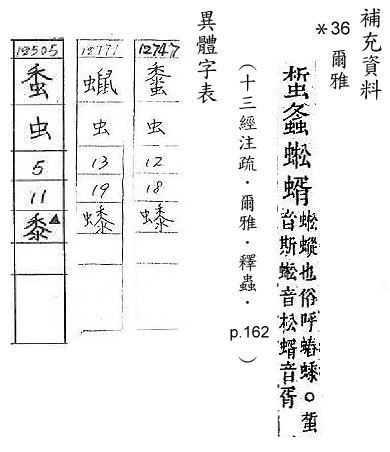 補充資料
*36 爾雅
螽蜙蝑
蜙也俗呼。
音斯蜙音松蝑音胥
(十三經注疏．爾雅．釋蟲．p.162)
異體字表
12747
虫
12
18
12771
虫
13
19
12505
虫
5
11